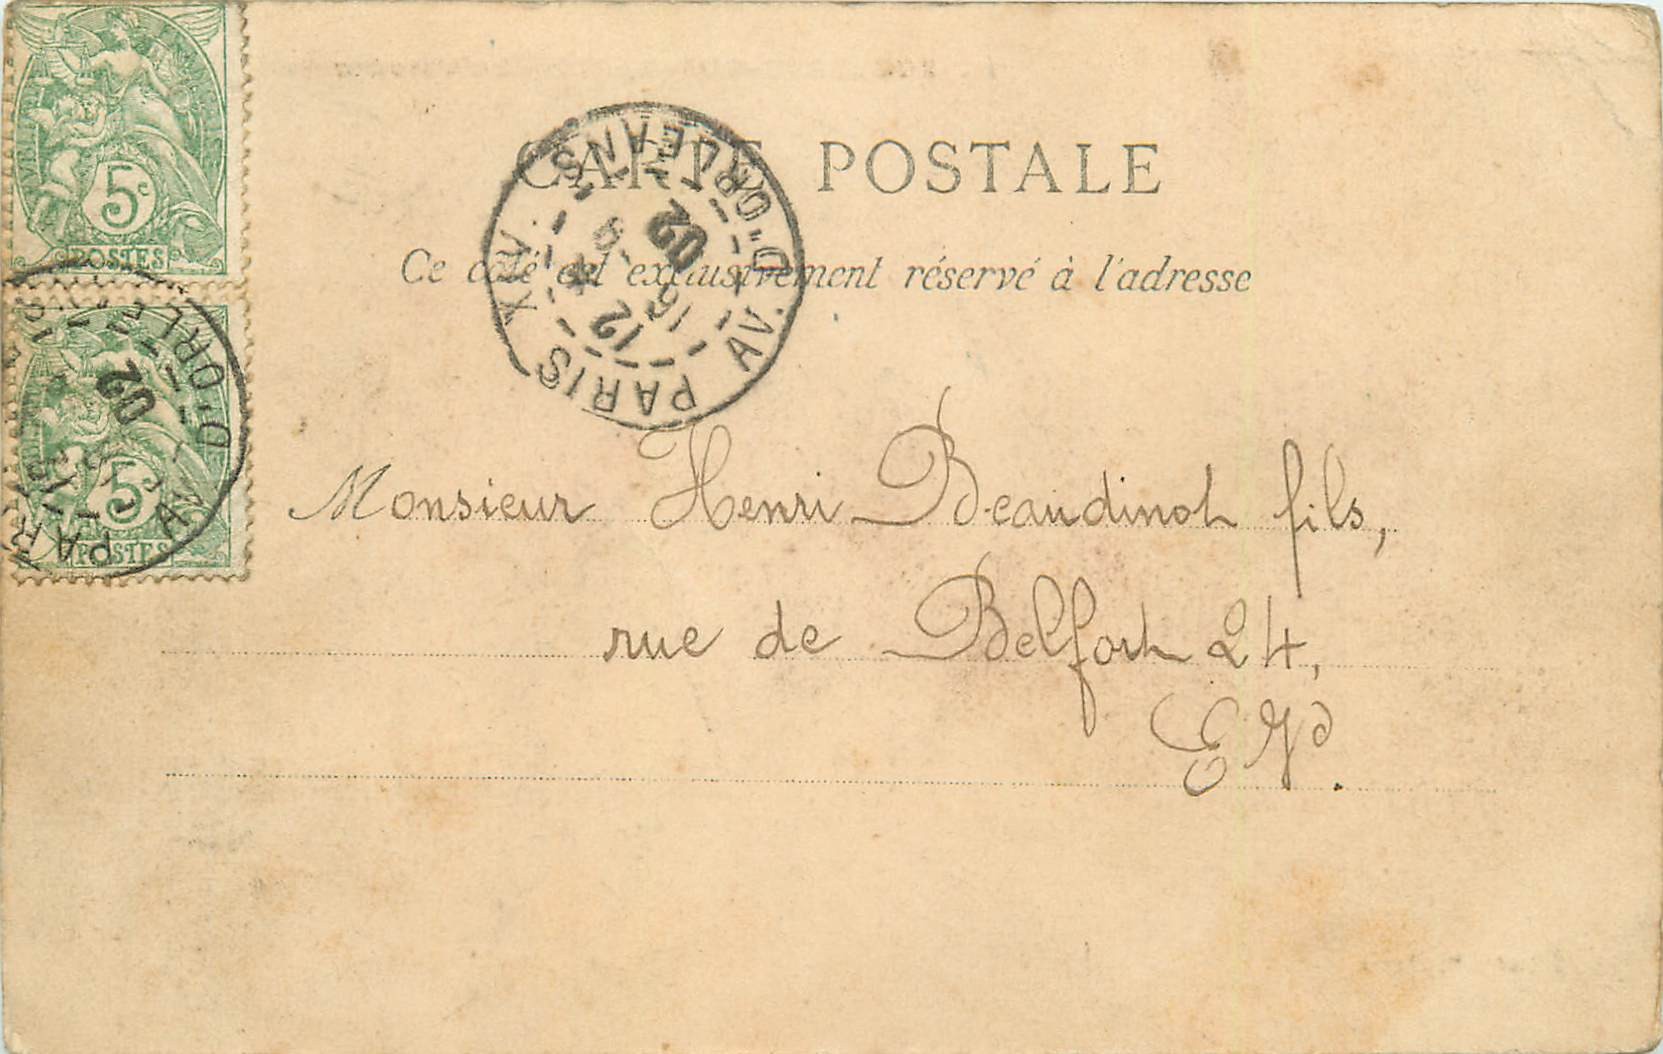 CARTE POSTALE
Ce côté est exclusivement réservé à l'adresse
5c
POSTES
5c
POSTES
PARIS XIV. AV. D'ORLEANS
12
16
9
02
02
Monsieur Henri Beaudinot fils,
rue de Belfort 24,